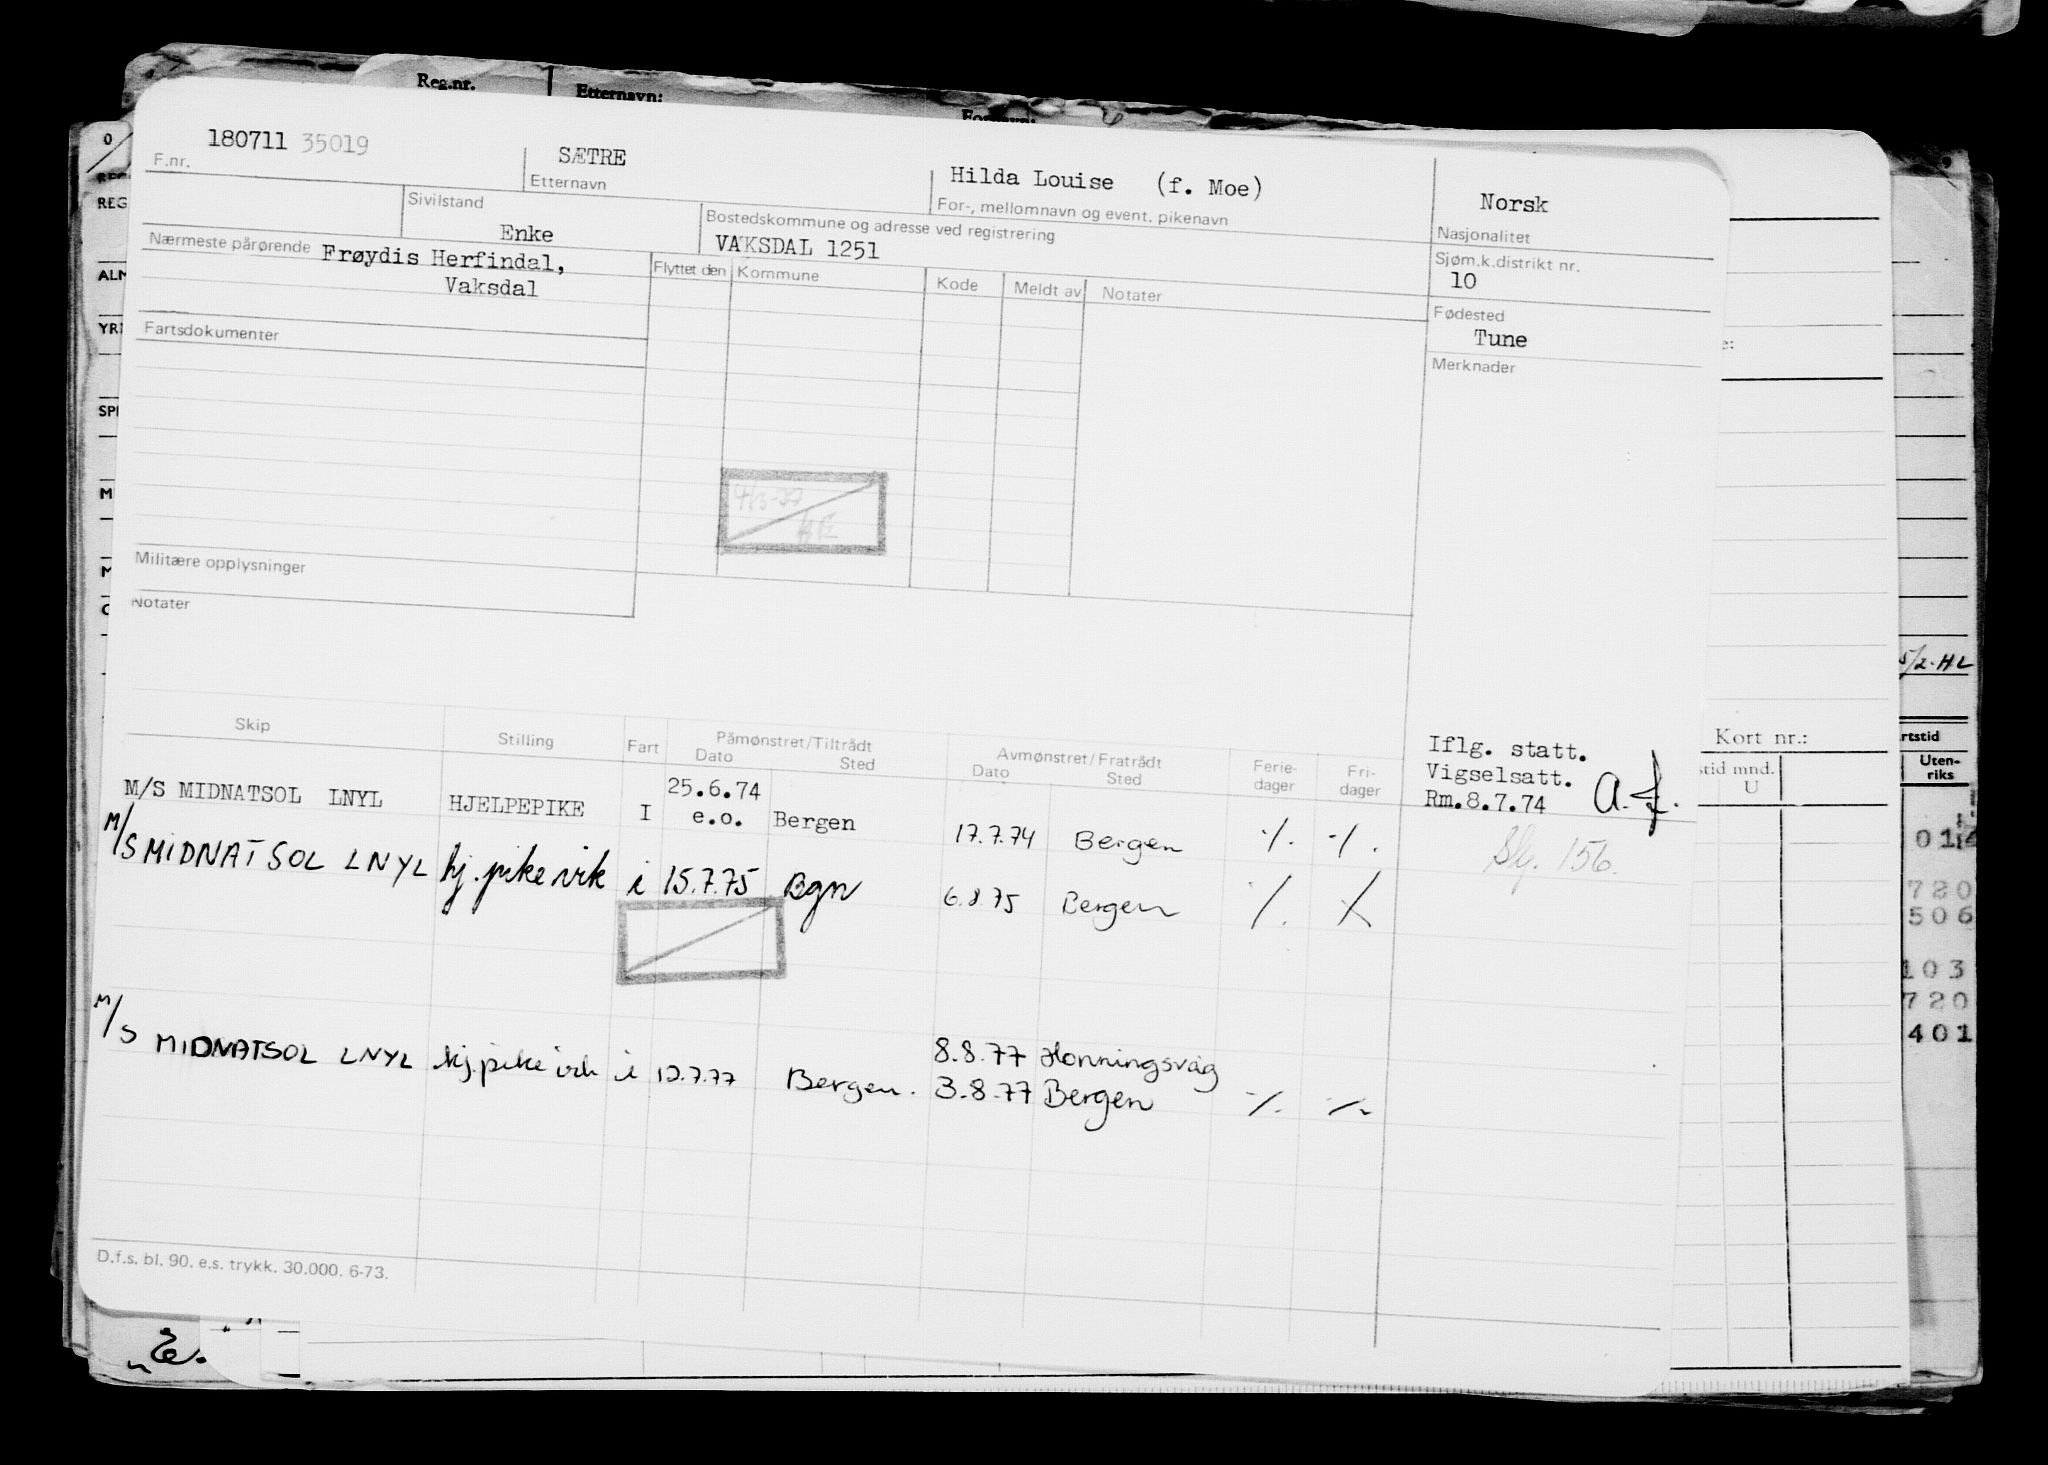 Reg.nr. Etternavn:
180711 35019 SÆTRE Hilda Louise (f. Moe) Norsk
F.nr. Etternavn For-, mellomnavn og event. pikenavn Nasjonalitet
Sivilstand Bostedskommune og adresse ved registrering Sjøm.k.distrikt nr.
Enke VAKSDAL 1251 10
Nærmeste pårørende Frøydis Herfindal,
Vaksdal
Flyttet den Kommune Kode Meldt av Notater Fødested
Tune
Fartsdokumenter Merknader
Militære opplysninger
Notater
5/2-HL
Skip Stilling Fart Påmønstret/Tiltrådt Avmønstret/Fratrådt Ferie- Fri-
Dato Sted Dato Sted dager dager
Iflg. statt.
Vigselsatt.
Rm.8.7.74
M/S MIDNATSOL LNYL HJELPEPIKE I 25.6.74
e.o. Bergen 17.7.74 Bergen -/. -/.
M/S MIDNATSOL LNYL hj.pike vik i 15.7.75 Bgn 6.8.75 Bergen /. X
M/S MIDNATSOL LNYL hj.pike vik i Bergen. 8.8.77 Honningsvåg
3.8.77 Bergen -/. -/.
D.f.s. bl. 90. e.s. trykk. 30.000. 6-73.
Kort nr.:
stid mnd.
U
rtstid
Uten-
riks
720
506
103
720
401